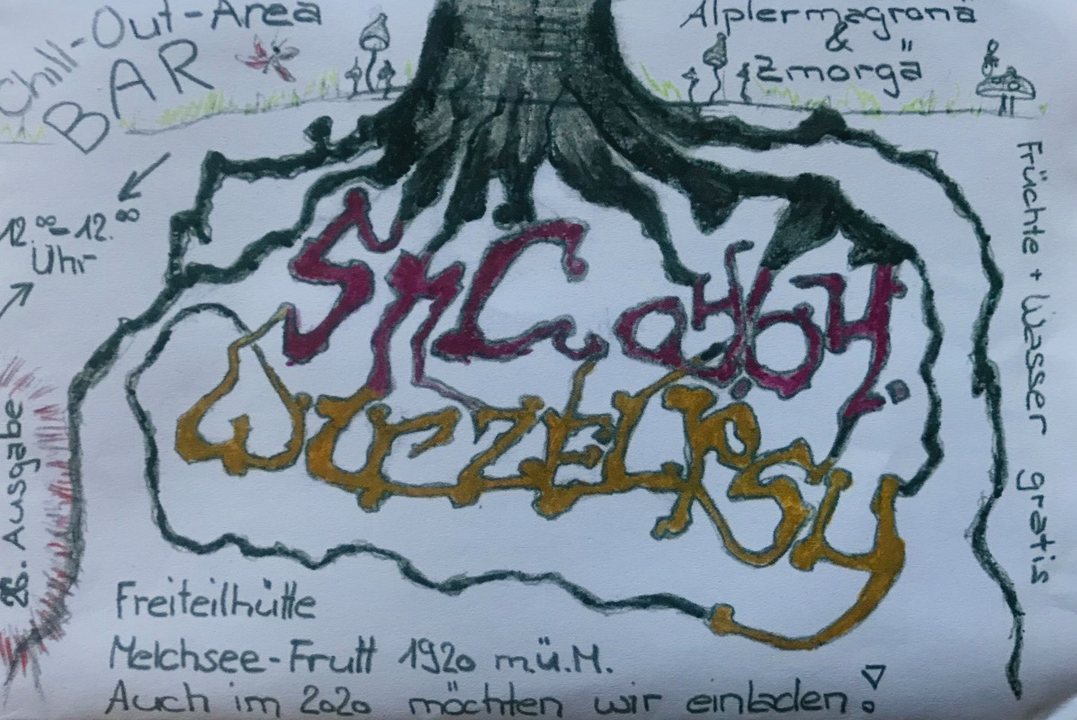 Chill-Out-Area
BAR
Älplermagronä
&
Zmorgä
12.00-12.00
Uhr
Ausgabe
Früchte + Wasser gratis
WURZELPSY
Freiteilhütte
Melchsee-Frutt 1920 m.ü.M.
Auch im 2020 möchten wir einladen!